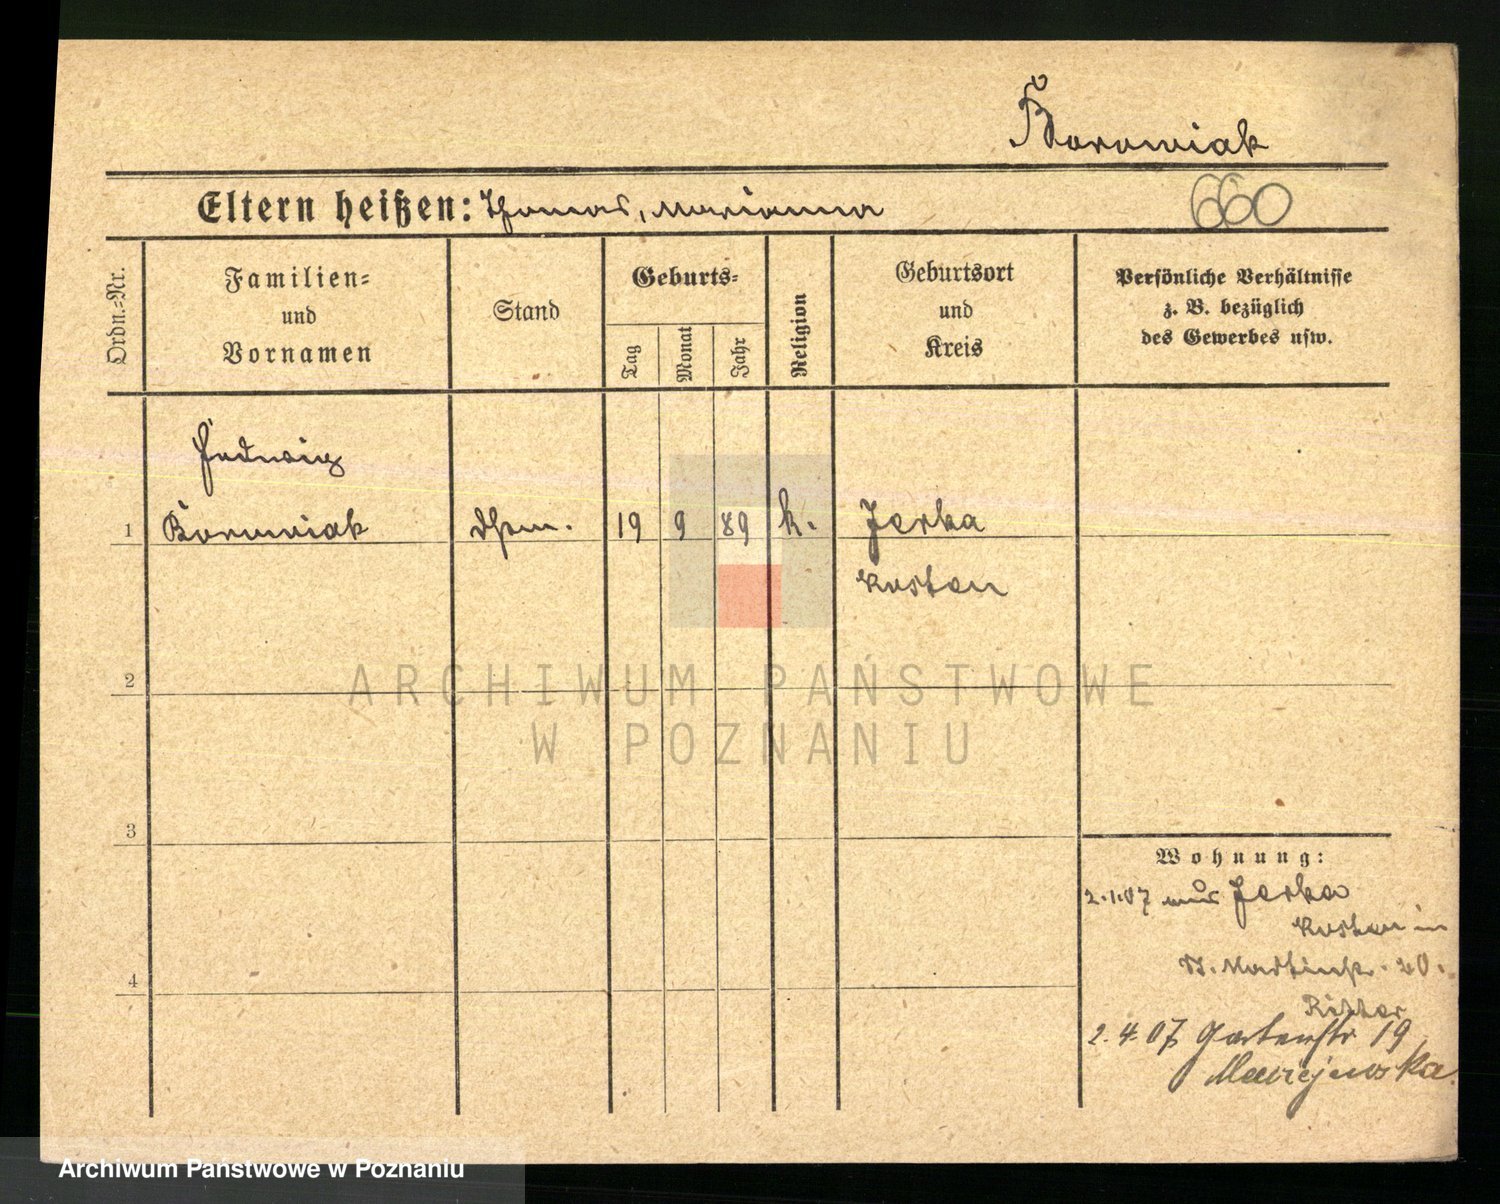 Borowiak
Eltern heißen: Thomas, Marianna
660
Ordn.=Nr.
Familien=
und
Vornamen
Stand
Geburts=
Tag
Monat
Jahr
Religion
Geburtsort
und
Kreis
Persönliche Verhältnisse
z. B. bezüglich
des Gewerbes usw.
Hedwig
1 Borowiak 19 9 89 k. Jerka
Kosten
2
ARCHIWUM PAŃSTWOWE
W POZNANIU
3
Wohnung:
2.1.07 aus Jerka
Kosten in
St. Martinstr. 20.
Ritter
4
2.4.07 Gartenstr 19
Maciejewska
Archiwum Państwowe w Poznaniu